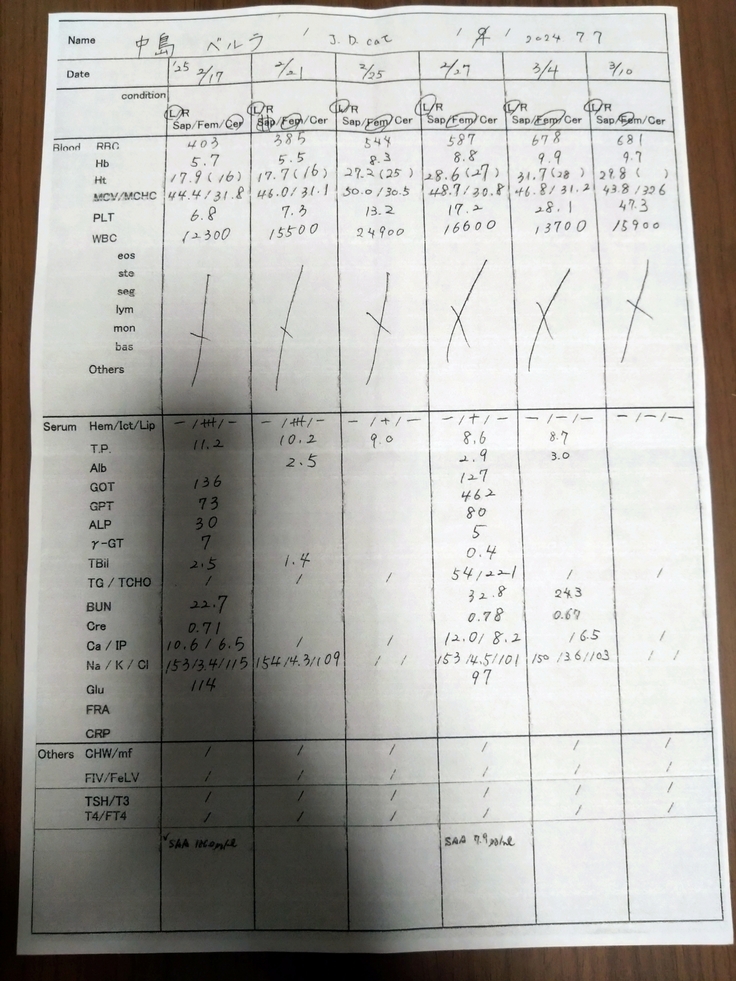 Name 中島 ベルラ / J.D. cat / ♀ / 2024 7 7
Date '25 2/17 2/21 2/25 2/27 3/4 3/10
condition
L/R L/R L/R L/R L/R L/R
Sap/Fem/Cer Sap/Fem/Cer Sap/Fem/Cer Sap/Fem/Cer Sap/Fem/Cer Sap/Fem/Cer
Blood RBC 403 385 544 587 678 681
Hb 5.7 5.5 8.3 8.8 9.9 9.7
Ht 17.9 (16) 17.7 (16) 27.2 (25) 28.6 (27) 31.7 (28) 29.8 ( )
MCV/MCHC 44.4/31.8 46.0/31.1 50.0/30.5 48.7/30.8 46.8/31.2 43.8/326
PLT 6.8 7.3 13.2 17.2 28.1 47.3
WBC 12300 15500 24900 16600 13700 15900
eos
sta
seg
lym
mon
bas
Others
Serum Hem/Ict/Lip -/+++/- -/+++/- -/+/- -/+/- -/-/- -/-/-
T.P. 11.2 10.2 9.0 8.6 8.7
Alb 2.5 2.9 3.0
GOT 136 127
GPT 73 462
ALP 30 80
γ-GT 7 5
TBil 2.5 1.4 0.4
TG / TCHO / / / 54/221 / /
BUN 22.7 32.8 24.3
Cre 0.71 0.78 0.67
Ca / IP 10.6 / 6.5 / / 12.0/ 8.2 / 6.5 /
Na / K / Cl 153/3.4/115 154/4.3/109 / / 153/4.5/101 150 /3.6/103 / /
Glu 114 97
FRA
CRP
Others CHW/mf / / / / / /
FIV/FeLV / / / / / /
TSH/T3 / / / / / /
T4/FT4 / / / / / /
SAA SAA 7.9